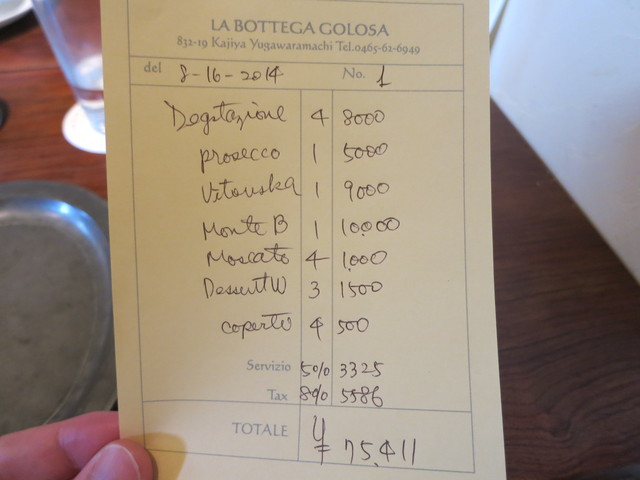 LA BOTTEGA GOLOSA
832-19 Kajiya Yugawaramachi Tel.0465-62-6949
del 8-16-2014 No. 1
Degstazione 4 8000
prosecco 1 5000
Vitouska 1 9000
Monte B 1 10,000
Moscato 4 1,000
Dessert W 3 1500
coperto 4 500
Servizio 5% 3325
Tax 8% 5586
TOTALE ¥ 75,411